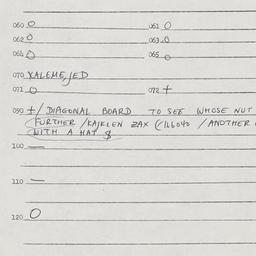 060 O 061 O
062 O 063 O
064 O 065 O
070 KALEME, JED
071 O 072 +
090 +/ DIAGONAL BOARD TO SEE WHOSE NUT
FURTHER / ZAX / ANOTHER
WITH A HAT $
100 —
110 —
120 O